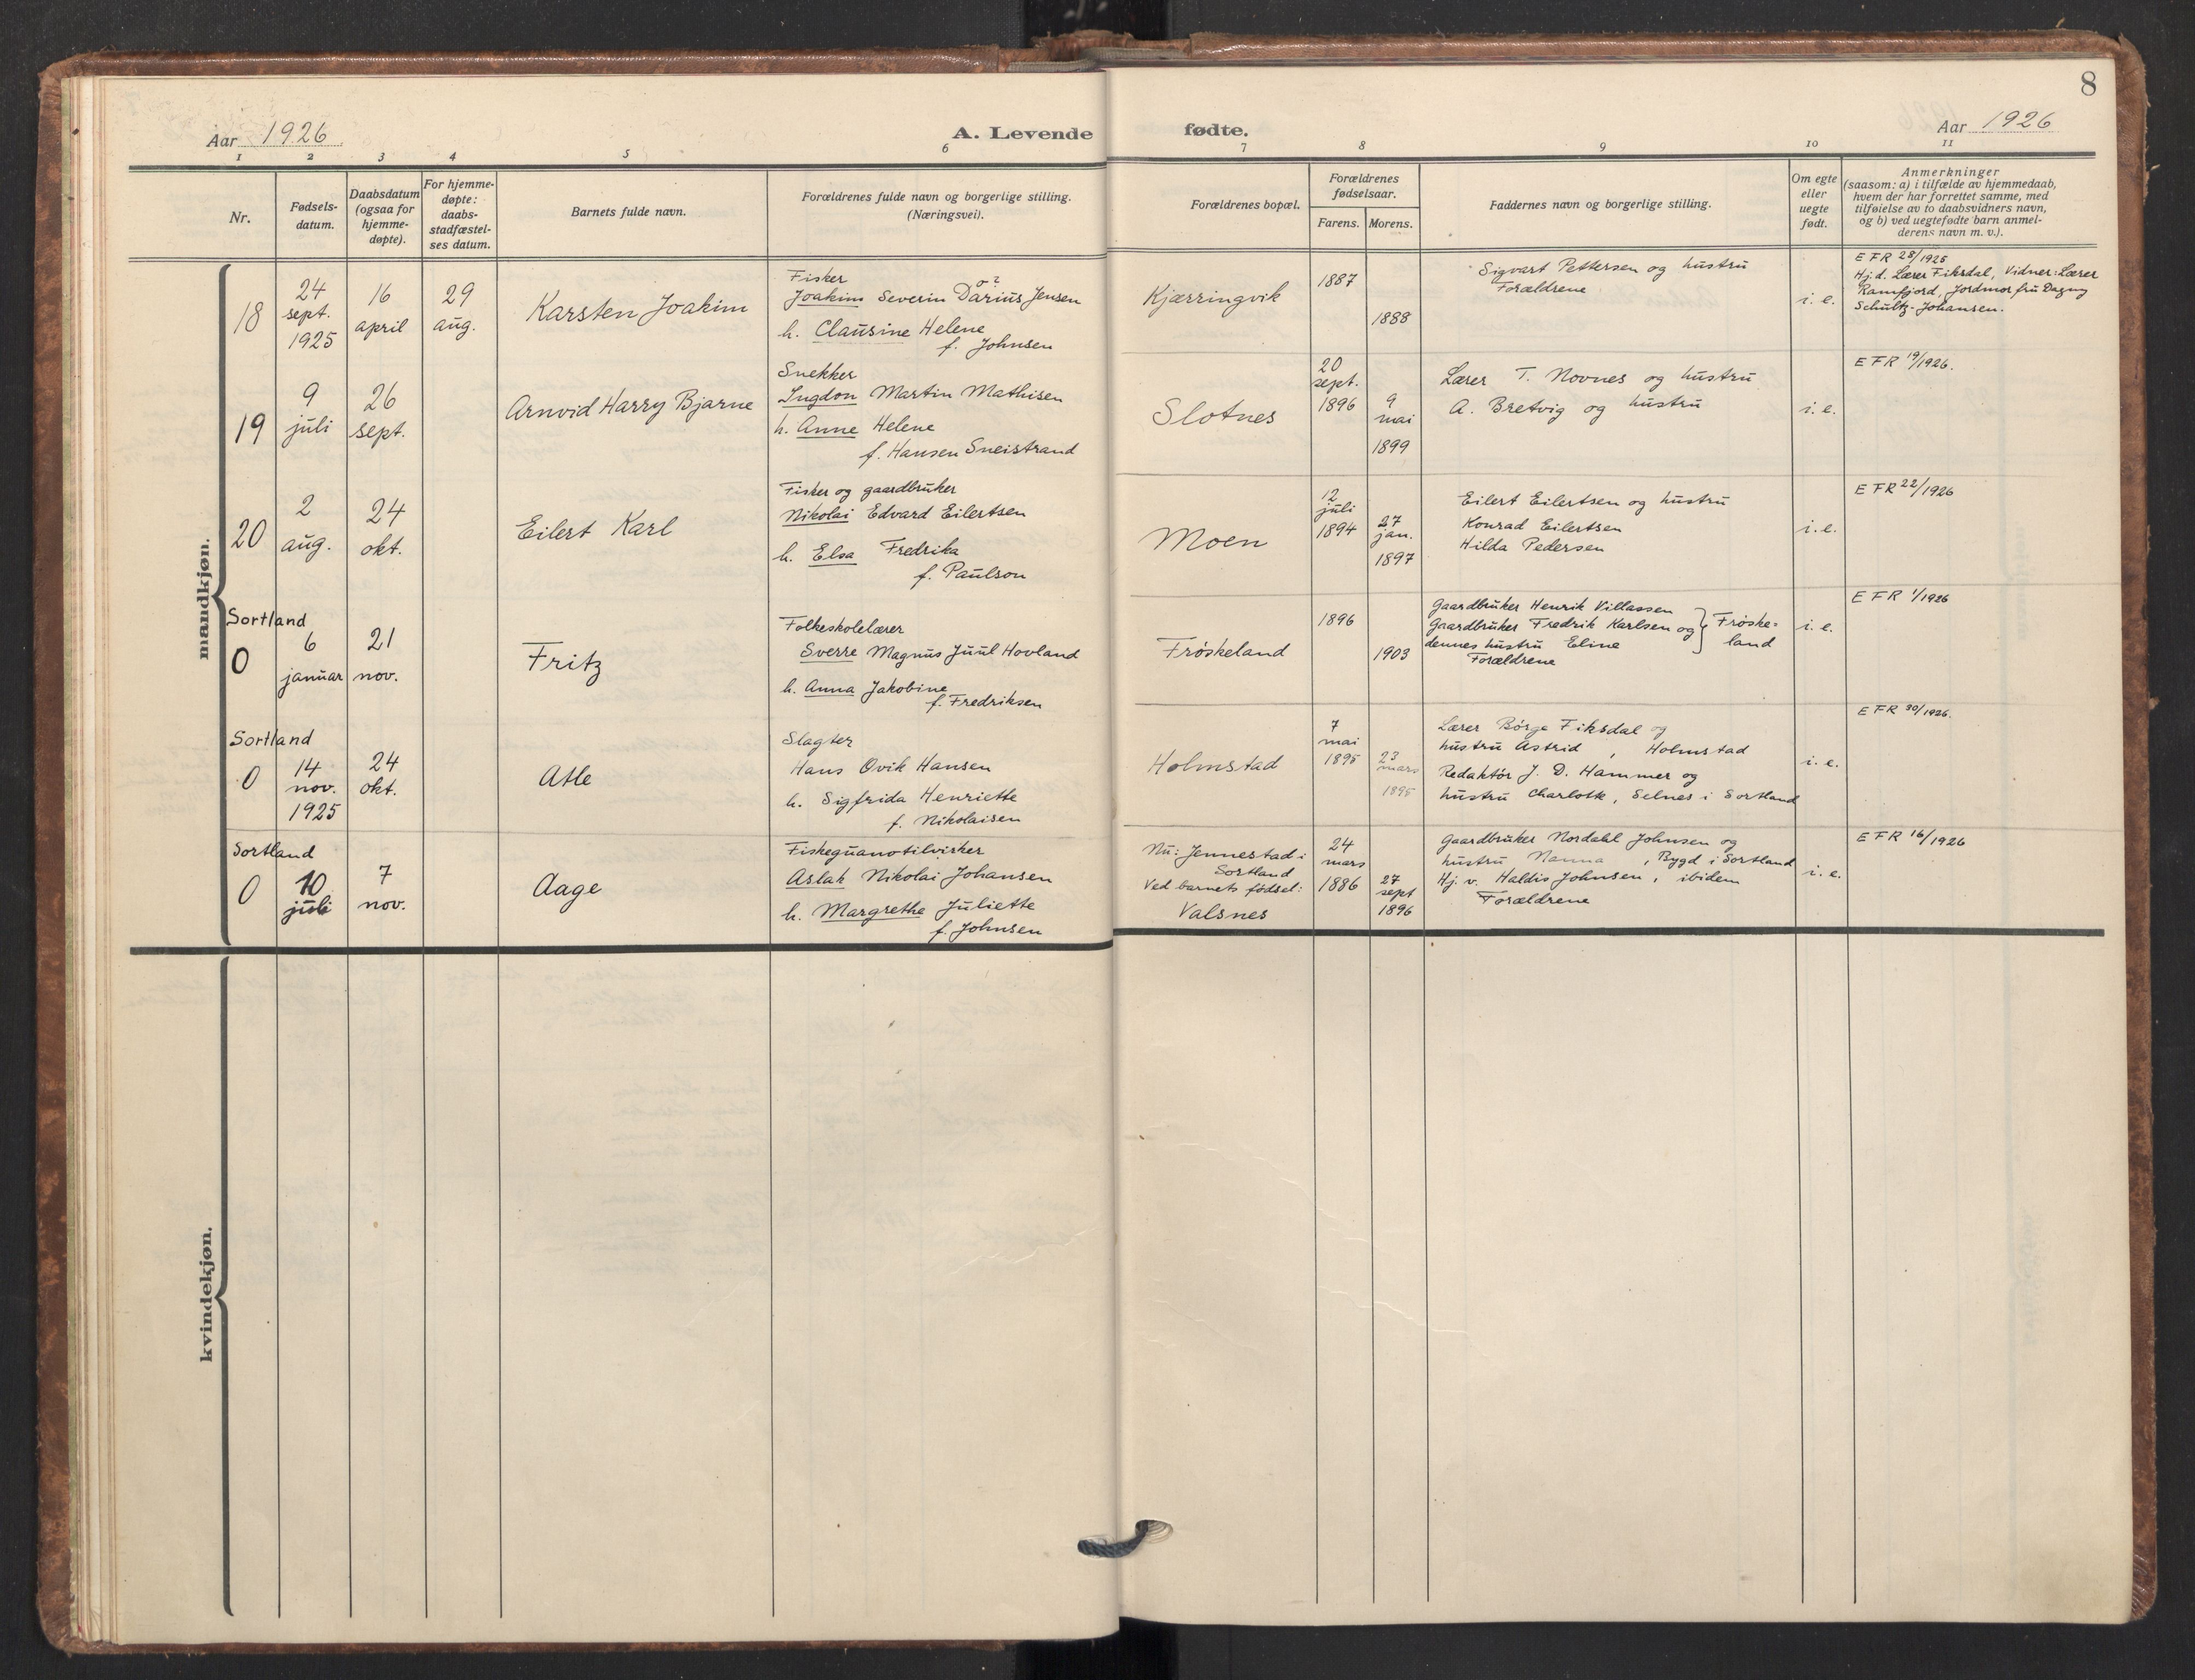 8
Aar 1926
A. Levende fødte.
Aar 1926
1 2 3 4 5 6 7 8 9 10 11
Nr.
Fødsels-
datum.
Daabsdatum
(ogsaa for
hjemme-
døpte).
For hjemme-
døpte:
daabs-
stadfæstel-
ses datum.
Barnets fulde navn.
Forældrenes fulde navn og borgerlige stilling.
(Næringsvei).
Forældrenes bopæl.
Forældrenes
fødselsaar.
Farens. Morens.
Faddernes navn og borgerlige stilling.
Om egte
eller
uegte
født.
Anmerkninger
(saasom: a) i tilfælde av hjemmedaab,
hvem der har forrettet samme, med
tilføielse av to daabsvidners navn,
og b) ved uegtefødte barn anmel-
derens navn m. v.).
mandkjøn.
18
24
sept.
1925
16
april
29
aug.
Karsten Joakim
Fisker
o?
Joakim Severin Darius Jensen
h. Clausine Helene
f. Johnsen
Kjærringvik
1887
1888
Sigvart Pettersen og hustru
Forældrene
i. e.
E F R 28/1925
Hj. d. Lærer Fiksdal, Vidner: Lærer
Ramfjord, Jordmor fru Dagny
Schultz-Johansen.
19
9
juli
26
sept.
Arnvid Harry Bjarne
Snekker
Ingdon Martin Mathisen
h. Anne Helene
f. Hansen Sneistrand
Slotnes
20
sept.
1896
9
mai
1899
Lærer T. Novnes og hustru
A. Bretvig og hustru
i. e.
E F R 19/1926.
20
2
aug.
24
okt.
Eilert Karl
Fisker og gaardbruker
Nikolai Edvard Eilertsen
h. Elsa Fredrika
f. Paulson
Moen
12
juli
1894
27
jan.
1897
Eilert Eilertsen og hustru
Konrad Eilertsen
Hilda Pedersen
i. e.
E F R 22/1926
Sortland
0
6
januar
21
nov.
Fritz
Folkeskolelærer
Sverre Magnus Juul Hovland
h. Anna Jakobine
f. Fredriksen
Frøskeland
1896
1903
Gaardbruker Henrik Villassen
Gaardbruker Fredrik Karlsen og
dennes hustru Eline
Frøske-
land
Forældrene
i. e.
E F R 1/1926
Sortland
0
14
nov.
1925
24
okt.
Atle
Slagter
Hans Ovik Hansen
h. Sigfrida Henriette
f. Nikolaisen
Holmstad
7
mai
1895
23
mars
1895
Lærer Børge Fiksdal og
hustru Astrid, Holmstad
Redaktør J. D. Hammer og
hustru Charlotte, Selnes i Sortland
i. e.
E F R 30/1926.
Sortland
0
10
juli
7
nov.
Aage
Fiskeguanotilvirker
Aslak Nikolai Johansen
h. Margrethe Juliette
f. Johnsen
Nu: Jennestad i
Sortland
Ved barnets fødsel:
Valsnes
24
mars
1886
27
sept
1896
Gaardbruker Nordahl Johnsen og
hustru Nanna, Bygd i Sortland
Hj. v. Haldis Johnsen, ibidem
Forældrene
i. e.
E F R 16/1926
kvindekjøn.